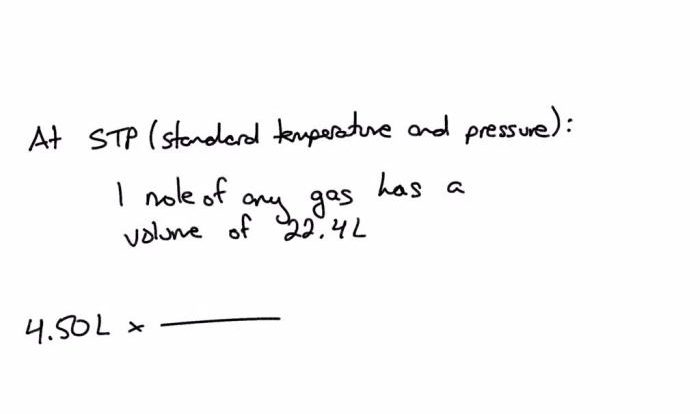 At STP (standard temperature and pressure):
1 mole of any gas has a
volume of 22.4L
4.50L ×